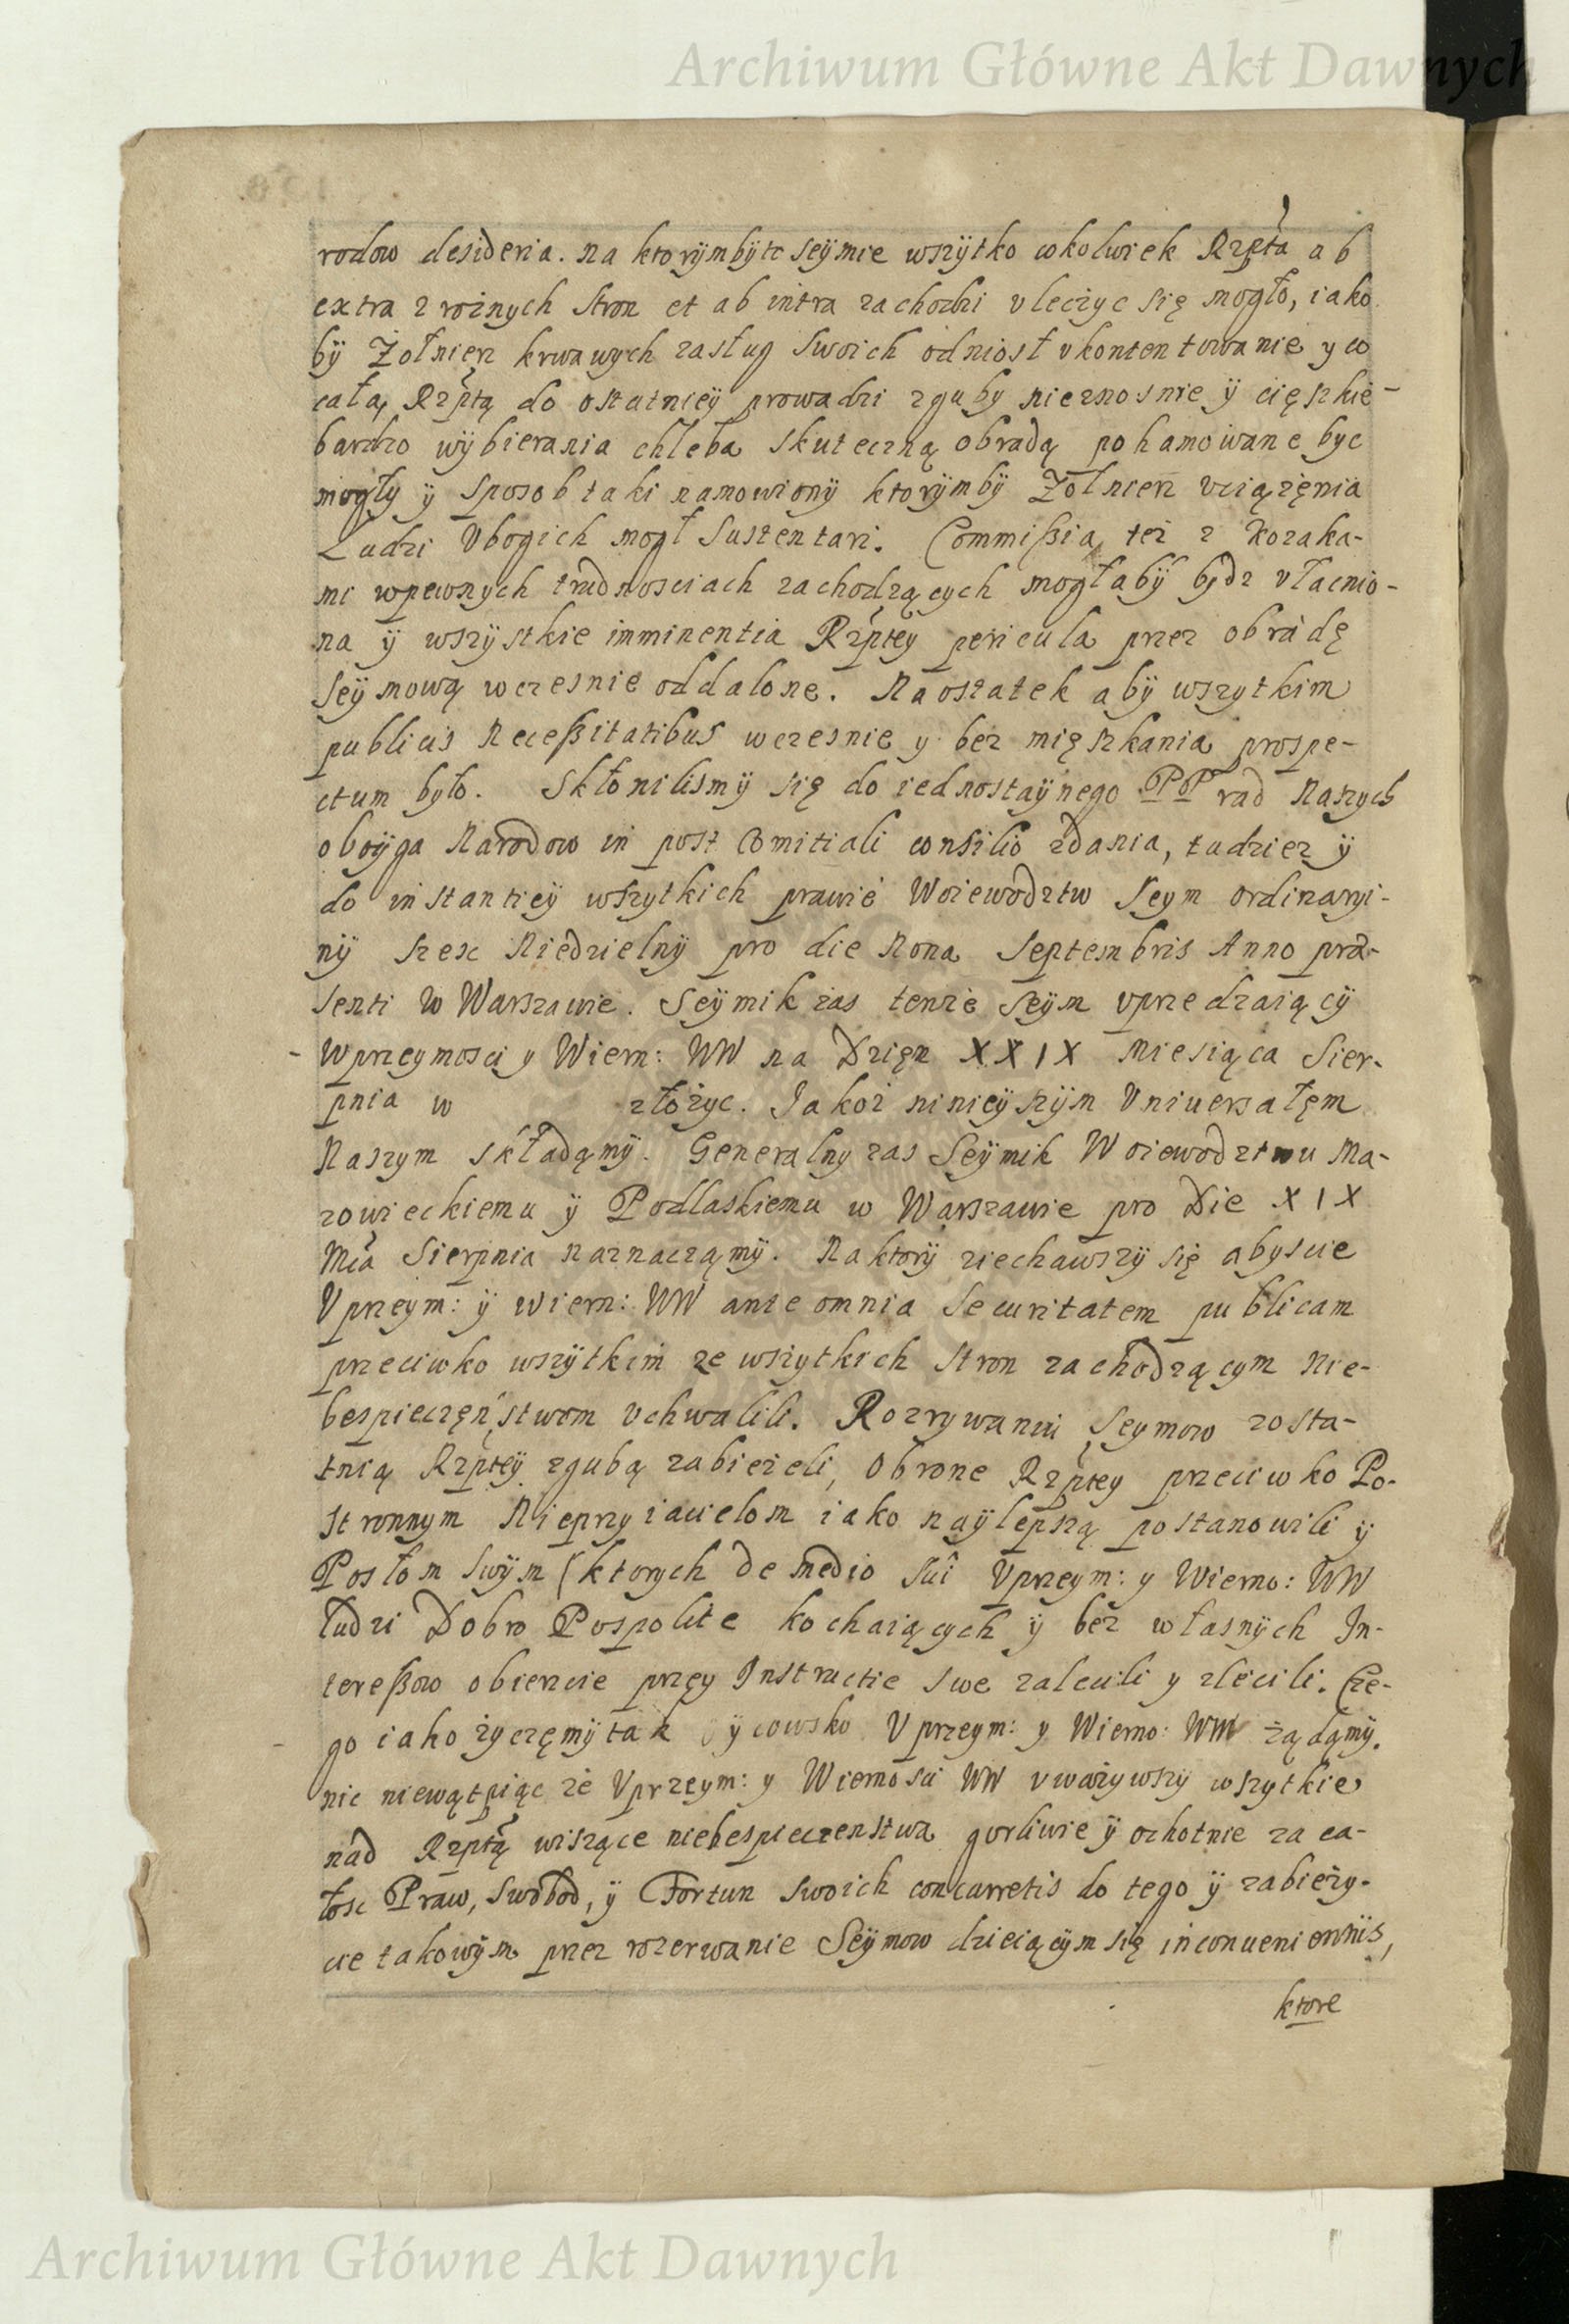 Archiwum Główne Akt Dawnych
rodow desideria. Na ktorÿmbÿtc Seÿmie wszÿtko cokolwiek Rzpta ab
extra z rożnych Stron et ab intra zachodzi vleczyc Się mogło, iako
bÿ Żołnierz krwawych zasług Swoich odniosł vkontentowanie y co
całą Rzptą do ostatnieÿ prowadzi zguby nieznosnie ÿ cięszkie-
bardzo wÿbierania chleba Skuteczną obradą pohamowane byc
mogły ÿ Sposob taki namowionÿ ktorÿmbÿ Żołnierz vciążęnia
Ludzi Vbogich mogł Sustentari. Commißia też z Kozaka-
mi wpewnych trudnosciach zachodzących mogłabÿ bydz vłacnio-
na ÿ wszÿstkie imminentia Rzptey pericula przez obradę
Seÿmową wczesnie oddalone. Na ostatek abÿ wszytkim
publicis Neceßitatibus wczesnie y bez mięszkania prospe-
ctum było. Skłonilismÿ się do iednostaÿnego PP rad Naszych
oboÿga Narodow in post Comitiali consilio zdania, tudziez ÿ
do instantieÿ wszytkich prawie Woiewodztw Seym ordinaryi-
nÿ szesc Niedzielnÿ pro die Nona Septembris Anno præ-
senti w Warszawie. Seÿmik zas tenże Seÿm vprzedzaiącÿ
Wprzeymosci y Wiern: WW na Dzięn XXIX Miesiąca Sier-
pnia w złożyc. Jakoż ninieÿszÿm Vniuersałęm
Naszym składąmÿ. Generalny zas Seÿmik Woiewodztwu Ma-
zowieckiemu ÿ Podlaskiemu w Warszawie pro Die XIX
Mca Sierpnia naznacząmÿ. Na ktorÿ ziechawszÿ się abyscie
Vprzeym: ÿ Wiern: WW ante omnia Securitatem publicam
przeciwko wszÿtkim ze wszytkich Stron zachodzącym Nie-
bespieczęństwom vchwalili. Rozrywaniu Seymow zosta-
tnią Rzpteÿ zgubą zabieżeli, Obrone Rzptey przeciwko Po-
stronnym Nieprzyiacielom iako naÿlepszą postanowili ÿ
Posłom Swÿm (ktorych de medio Sui Vprzeym: y Wierno: WW
ludzi Dobro Pospolite kochaiących ÿ bez własnÿch In-
tereßow obierzcie przy Instructie Swe zalecili y zlecili. Cze-
go iako życzęmÿ tak ÿcowsko Vprzeym: y Wierno: WW żądąmÿ.
nic niewątpiąc że Vprzeym: y Wiernosci WW vważywszy wszytkie
nad Rzptą wiszące niebespieczenstwa gorliwie ÿ ochotnie za ca-
łosc Praw, Swobod, ÿ Fortun Swoich concurretis do tego ÿ zabieży-
cie takowÿm przez rozerwanie Seÿmow dzieiącÿm się inconuenientiis,
ktore
Archiwum Główne Akt Dawnych